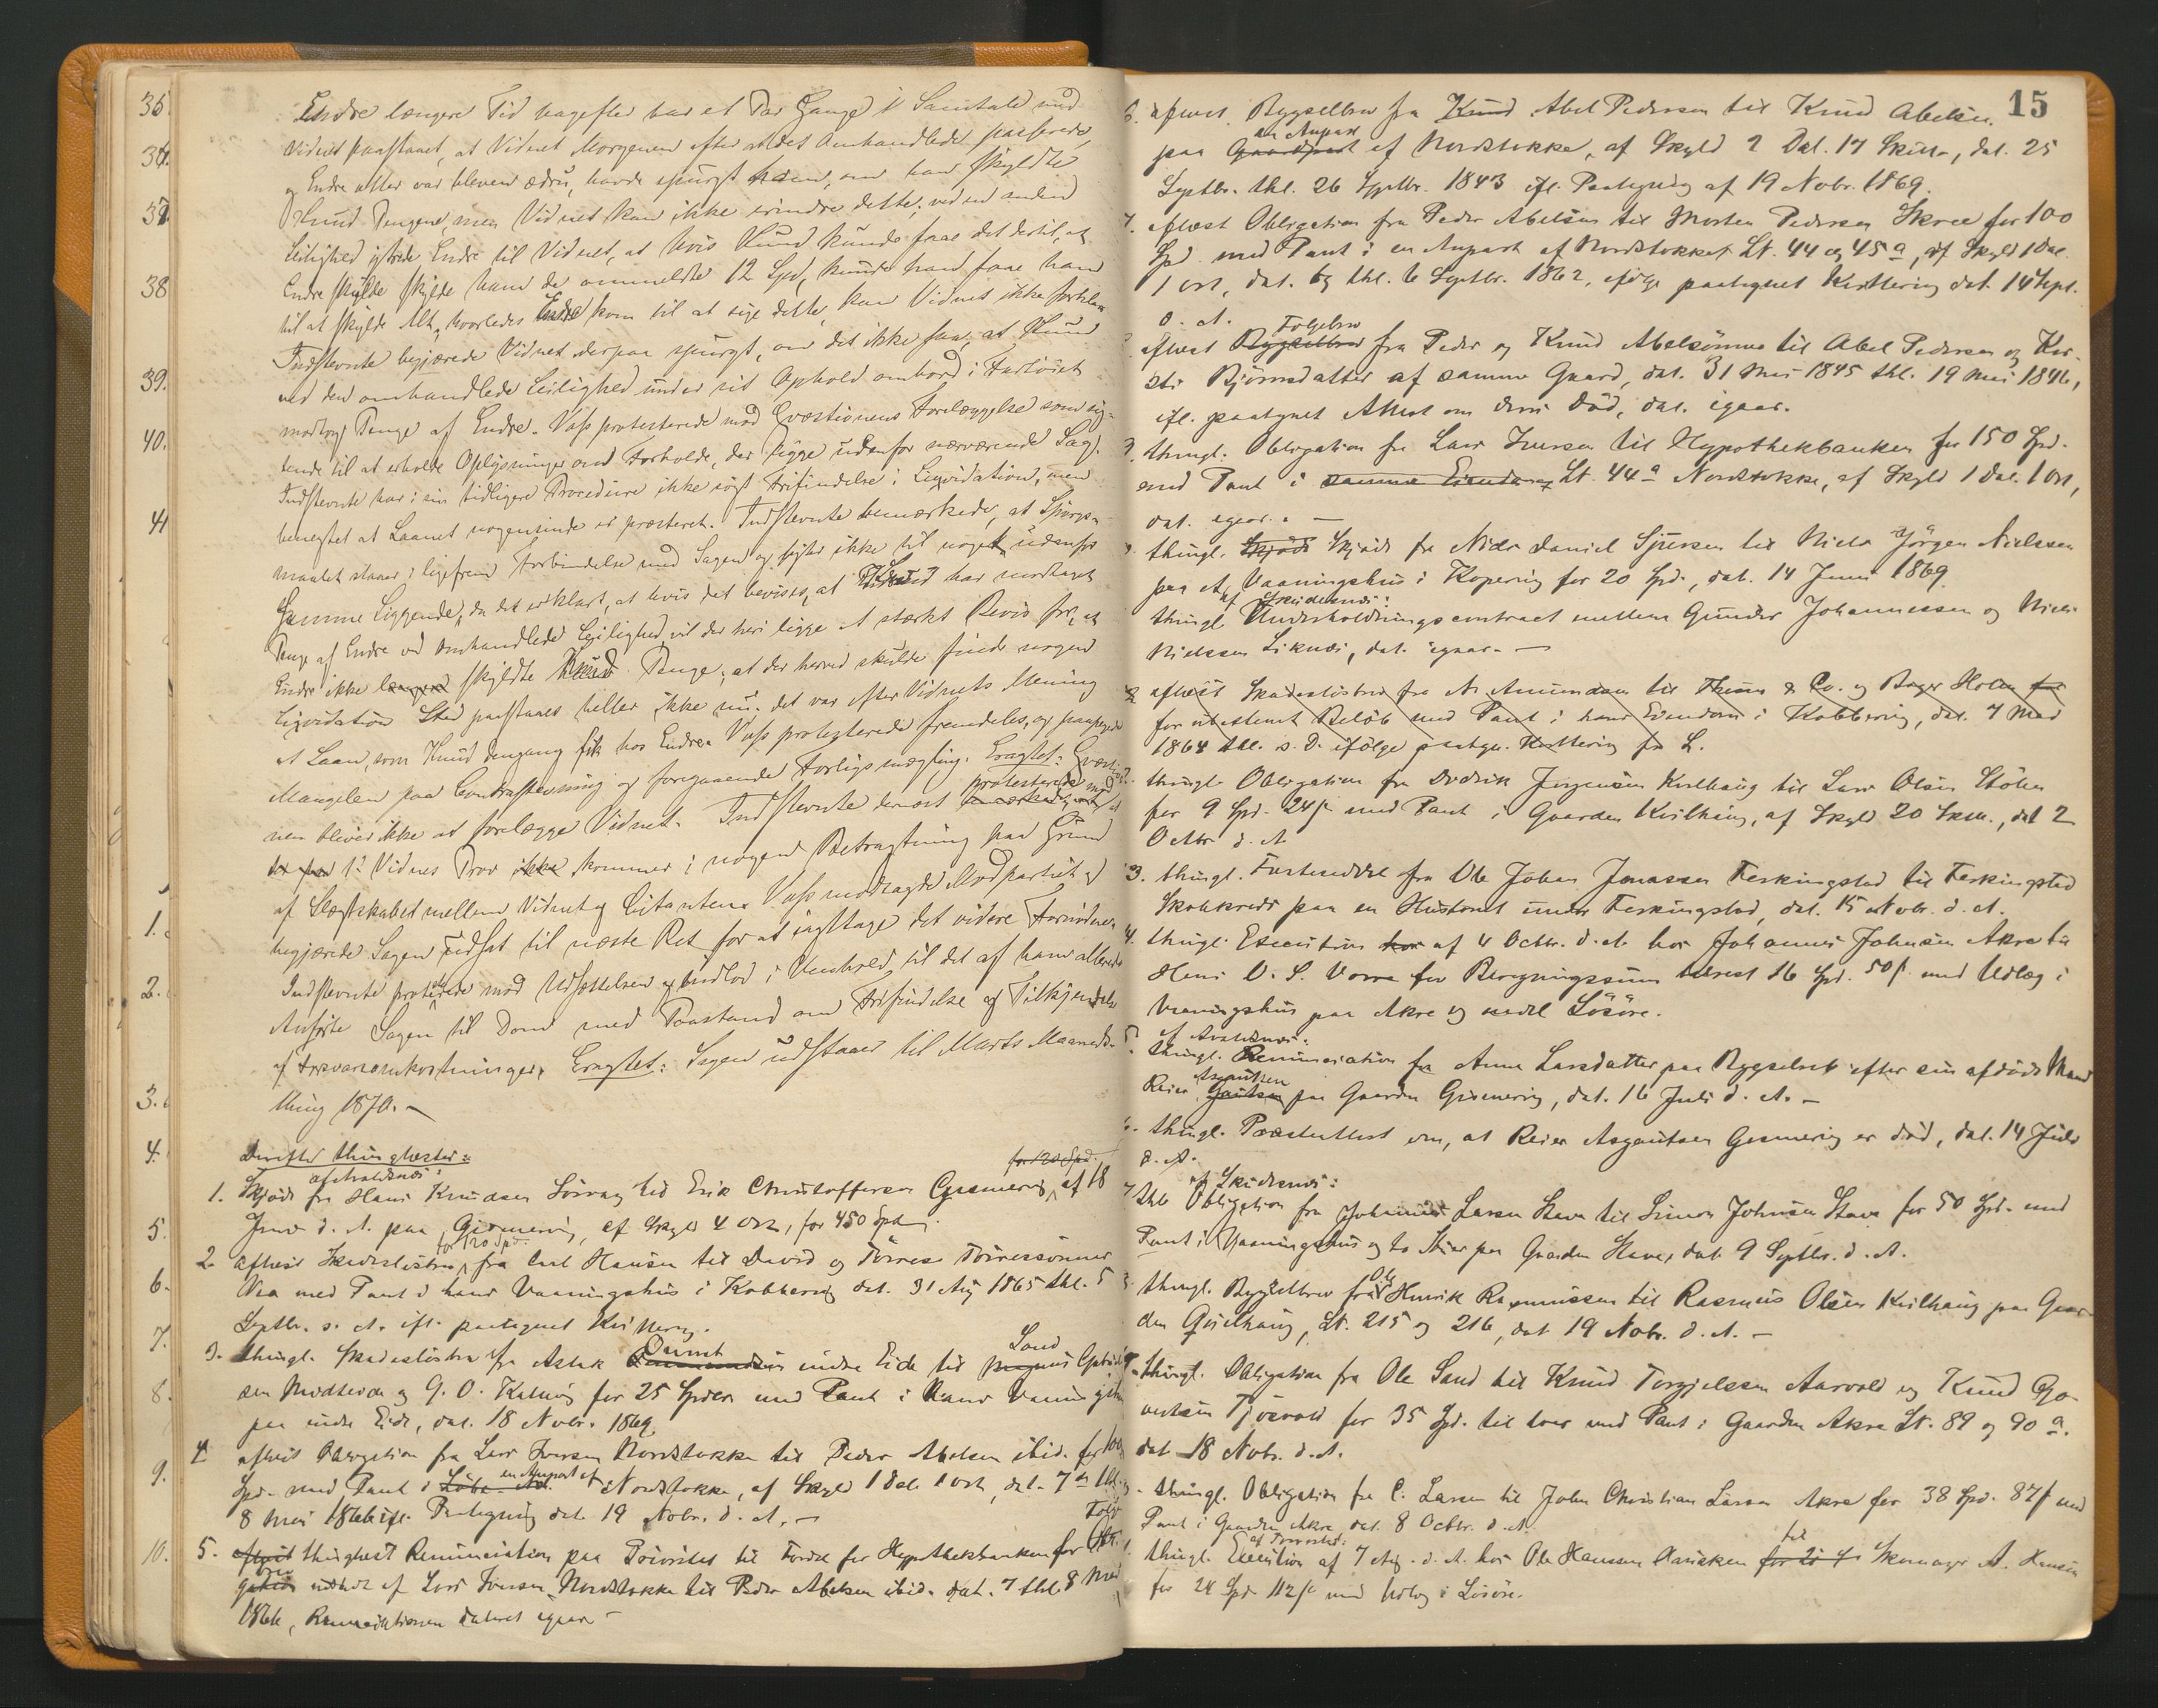 Endre længere Tid bagefter har et Par Gange i Samtale med
Vidnet paastaaet, at Vidnet Morgenen efter at det Omhandlede passerede,
og Endre atter var bleven ædru, havde spurgt ham, om han skyldte
Knud Pengene, men Vidnet kan ikke erindre dette; ved en anden
Leilighed ytrede Endre til Vidnet, at hvis Knud kunde faae det dertil, at
Endre skulde skylde ham de ommeldte 12 Spd, kunde han faae ham
til at skylde Alt, hvorledes Endre kom til at sige dette, kan Vidnet ikke forklare
Indstevnte begjærede Vidnet derpaa spurgt, om det ikke saa, at Knud
ved den omhandlede Leilighed under sit Ophold ombord i Fartøiet
modtog Penge af Endre. Vass protesterede mod Qvæstionens Forelæggelse som sig-
tende til at erholde Oplysninger om Forholde, der ligge udenfor nærværende Sag.
Indstevnte har i sin tidligere Procedure ikke søgt Frifindelse i Liqvidation, men
benegtet at Laanet nogensinde er præsteret. Indstevnte bemærkede, at Spørgs-
maalet staaer i ligefrem Forbindelse med Sagen og sigter ikke til noget udenfor
Samme Liggende, da det er klart, at hvis det bevises, at Knud har modtaget
Penge af Endre ved omhandlede Leilighed, vil der heri ligge et stærkt Bevis for, at
Endre ikke skyldte Knud Penge; at der herved skulde finde nogen
Liqvidation Sted paastaaes heller ikke nu. det var efter Vidnets Mening
et Laan, som Knud dengang fik hos Endre. Vass protesterede fremdeles, og paapegede
Mangelen paa Contrastevning og foregaaende Forligsmægling. Eragtet: Qvæstio-
nen bliver ikke at forelægge Vidnet. Indstevnte dernæst protesterede mod at
1ste Vidnes Prov kommer i nogen Betragtning paa Grund
af Slægtskabet mellem Vidnet og Citanten. Vass modsagde Modpartiet og
begjærede Sagen udsat til næste Ret for at iagttage det videre Fornødne.
Indstevnte protesterede mod Udsættelsen og indlod i Henhold til det af ham allerede
Anførte Sagen til Dom med Paastand om Frifindelse og Tilkjendelse
af Forsvarsomkostninger. Eragtet: Sagen udstaaer til Marts Maaneds
thing 1870.
Derefter thinglæstes:
af Avaldsnæs:
1. Skjøde fra Hans Knudsen Sørvaag til Erik Christoffersen Gismervig af 18
Juni d. A. paa Gismervig, af Skyld 4 Ort, for 450 Spd.
2. aflæst Skadesløsbrev for 120 Spd. fra Carl Hansen til David og Tørres Tørressønner
Vea med Pant i hans Vaaningshus i Kobbervig dat. 31 Aug 1865 thl. 5
Septbr. s. A. ifl. paategnet Kvittering.
3. thingl. Skadesløsbrev fra Aslak indre Eide til
sen Midtveide og G. O. Kallevig for 25 Spdlr med Pant i hans Vaaningshus
paa indre Eide, dat. 18 Novbr. 1869.
4. aflæst Obligation fra Lars Iversen Nordstokke til Peder Abelsen ibid. for 100
Spd. med Pant i en Anpart af Nordstokke, af Skyld 1 Dal. 1 Ort, dat. 7 thl.
8 Mai 1866 ifl. Paategning dat. 19 Novbr. d. A.
5. thinglæst Renunciation paa Prioritet til Fordel for Hypothekbanken for Obli-
gation udstedt af Lars Iversen Nordstokke til Peder Abelsen ibid. dat. 7 thl. 8 Mai
1866, Renunciationen dateret igaar
15
6. aflæst Bygselbrev fra Abel Pedersen til Knud Abelsen
paa en Anpart af Nordstokke, af Skyld 2 Dal. 17 Skill., dat. 25
Septbr. thl. 26 Septbr. 1843 ifl. Paategning af 19 Novbr. 1869.
7. aflæst Obligation fra Peder Abelsen til Morten Pedersen Skree for 100
Spd. med Pant i en Anpart af Nordstokke Lt. 44 og 45 a, af Skyld 1 Dal.
1 Ort, dat. og thl. 6 Septbr. 1862, ifølge paategnet Kvittering dat. 14 Sept.
d. A.
aflæst Følgebrev fra Peder og Knud Abelsønner til Abel Pedersen og Kir-
sti Bjørnsdatter af samme Gaard, dat. 31 Mai 1845 thl. 19 Mai 1846,
ifl. paategnet Attest om deres Død, dat. igaar.
9. thingl. Obligation fra Lars Iversen til Hypothekbanken for 150 Spd.
med Pant i Lt. 44 a Nordstokke, af Skyld 1 Dal. 1 Ort,
dat. igaar.
thingl. Skjøde fra Nils Daniel Sjursen til Niels Jørgen Nielssen
paa et Vaaningshus i Kopervig for 20 Spd., dat. 14 Juni 1869.
af Skudesnæs:
thingl. Underholdningscontract mellem Gunder Johannessen og Niels
Nielssen Liknæs, dat. igaar.
aflæst Skadesløsbrev fra A. Amundsen til & Co. og Holm
for ubestemt Beløb med Pant i hans Eiendom i Kobbervig, dat. 7 Mai
1864 thl. s. D. ifølge paategn. Kvittering
thingl. Obligation fra Didrik Jørgensen Kvilhaug til Lars Olsen Stølen
for 9 Spd. 24 ß med Pant i Gaarden Kvilhaug, af Skyld 20 Skill., dat 2
Octbr d. A.
3. thingl. Fæsteseddel fra Ole Johan Jonassen Ferkingstad til Ferkingstad
Skolekreds paa en Hustomt under Ferkingstad, dat. 15 Novbr. d. A.
4. thingl. Execution af 4 Octbr. d. A. hos Johannes Johnsen Akre for
Hans O. S. Vorre for Beregningssum 16 Spd. 50 ß. med Udlæg i
Vaaningshus paa Akre og Løsøre.
af Avaldsnæs:
5. thingl. Renunciation fra Anna Larsdatter paa Bygselret efter sin afdøde Mand
Reier Asgautsen paa Gaarden Gismervig, dat. 16 Juli d. A.
6. thingl. Præsteattest om, at Reier Asgautsen Gismervig er død, dat. 14 Juli
d. A.
af Skudesnæs:
7. thl. Obligation fra Johannes Larsen Stava til Simon Johnsen Stava for 50 Spd. med
Pant i Vaaningshus og to Kiør paa Gaarden Stava, dat. 9 Septbr. d. A.
thingl. Bygselbrev fra Ole Henrik Rasmussen til Rasmus Olsen Kvilhaug paa Gaar-
den Qvilhaug, Lt. 215 og 216, dat. 19 Novbr. d. A.
thingl. Obligation fra Ole Sand til Knud Torgjelssen Aarvold og Knud Go-
vertsen Tjøsvold for 35 Spd. til hver med Pant i Gaarden Akra Lt. 89 og 90 a.
dat 18 Novbr. d. A.
thingl. Obligation fra C. Larsen til John Christian Larsen Akra for 38 Spd. 87 ß med
Pant i Gaarden Akra, dat. 8 Octbr. d. A.
af Torvestad:
thingl. Execution af 7 Aug. d. A. hos Ole Hanssen Hasseken for Skomager A. Hansen
for 24 Spd. 112 ß med Udlæg i Løsøre.